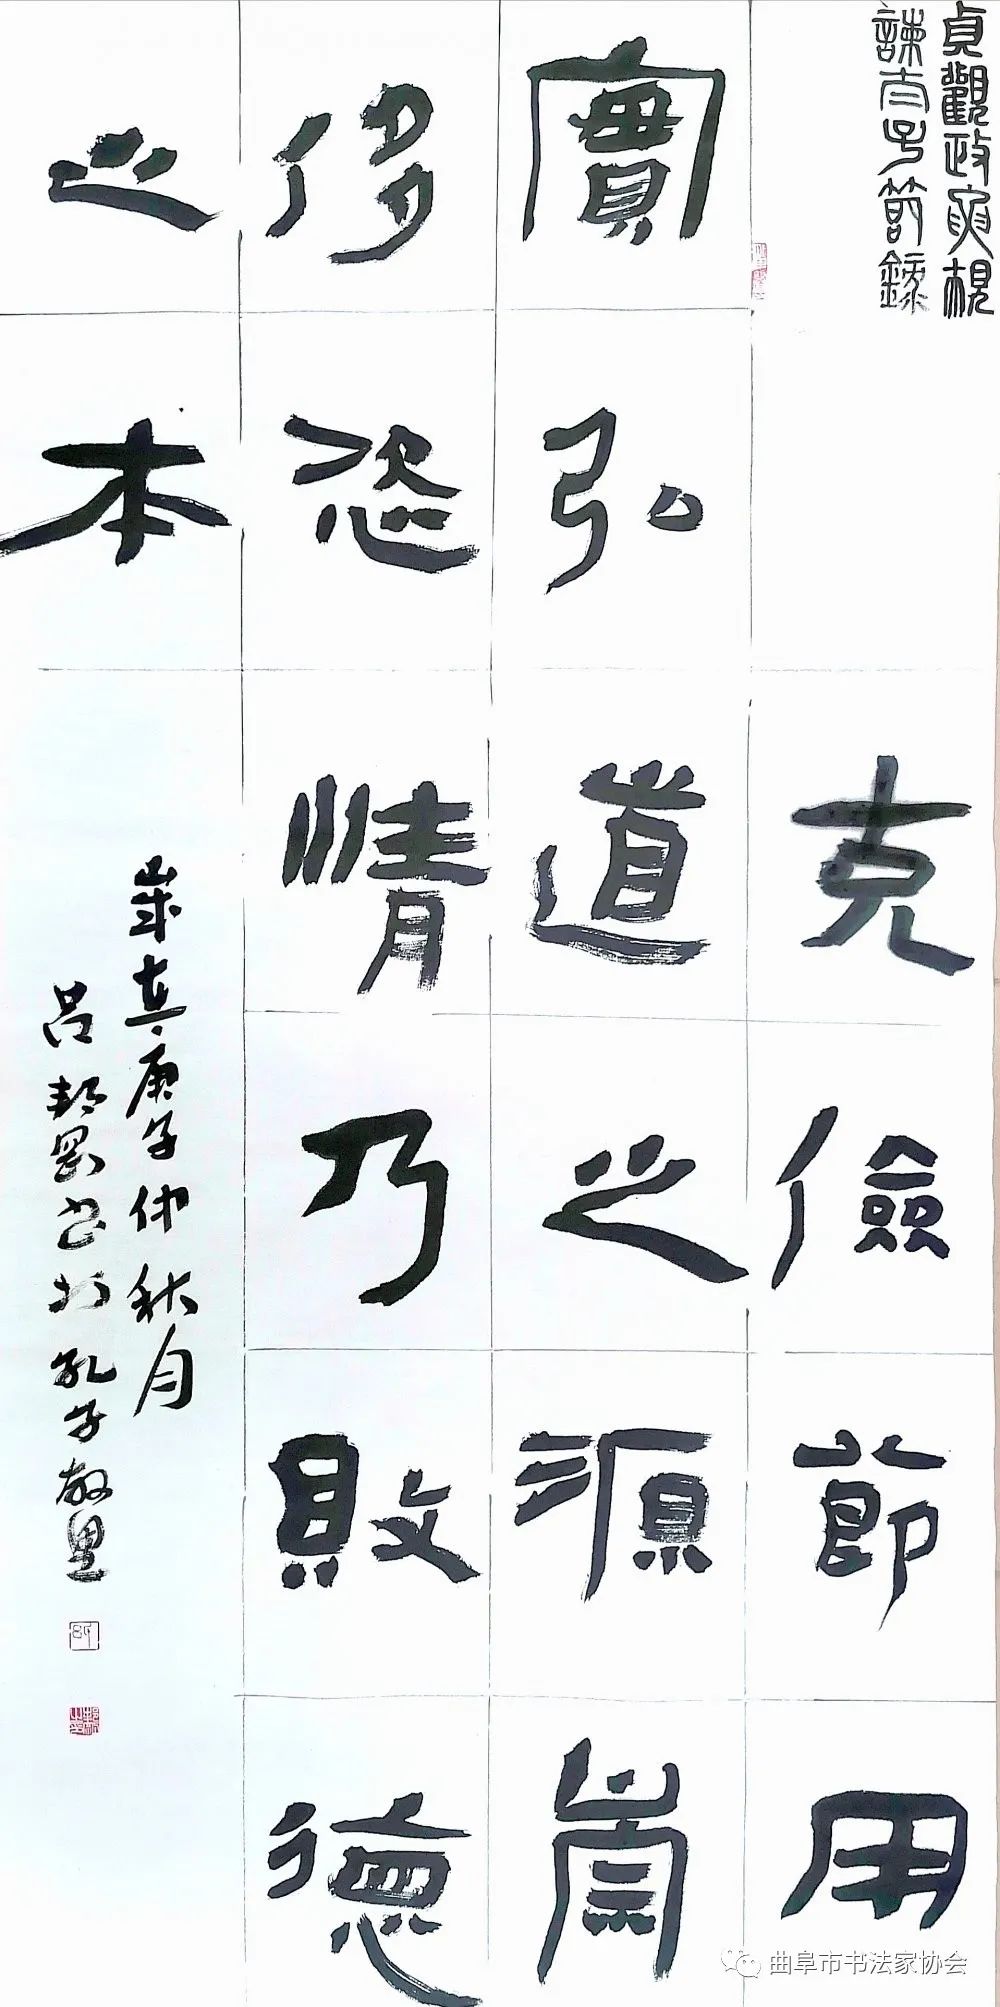 貞觀政要規
諫太子節錄
克儉節用
實弘道之源崇
侈恣情乃敗德
之本
歲在庚子仲秋月
呂邦罡书於孔子故里
曲阜市书法家协会